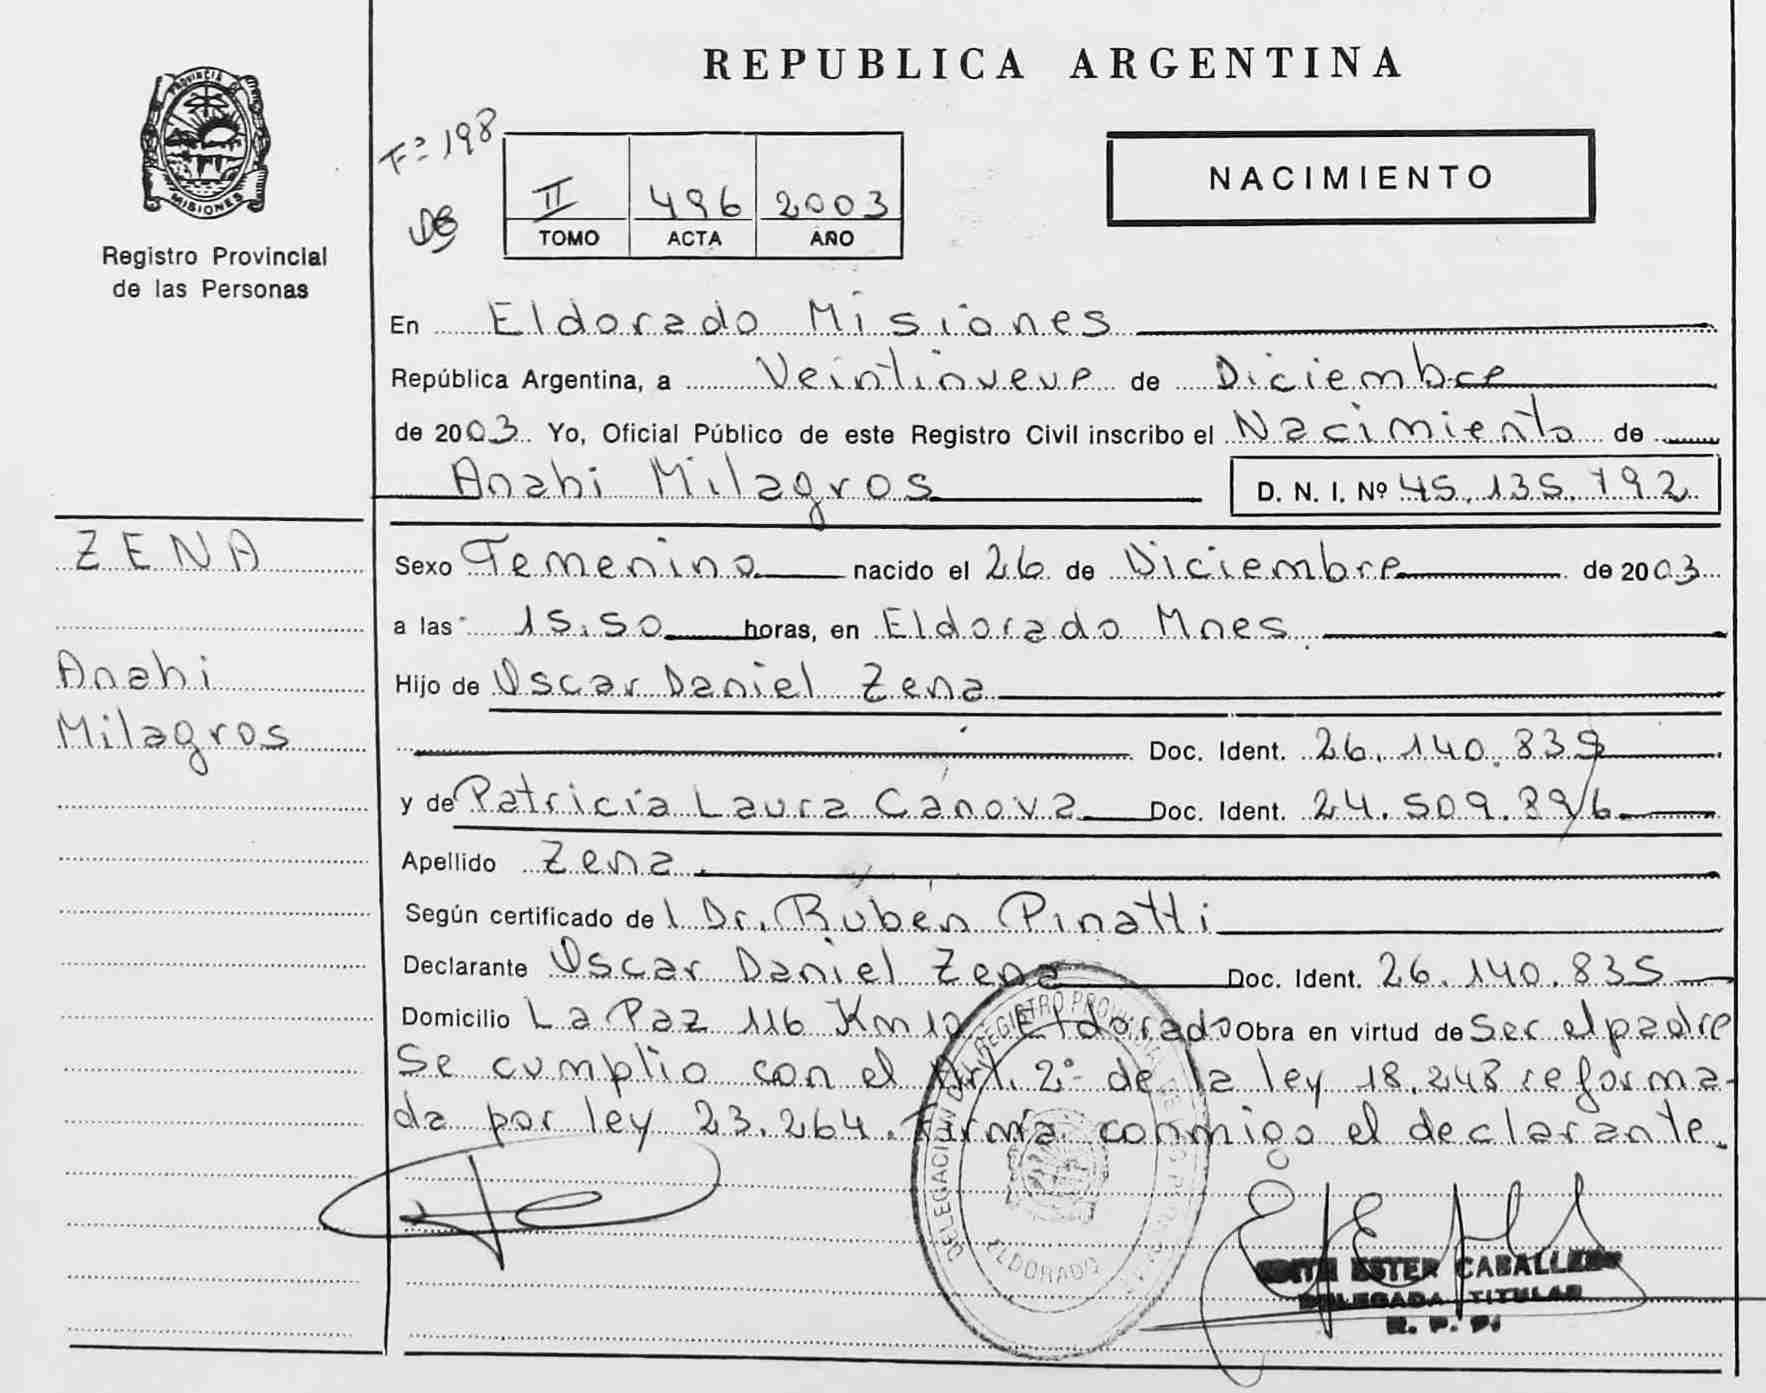 REPUBLICA ARGENTINA
PROVINCIA
MISIONES
Registro Provincial
de las Personas
Fº 198
II 496 2003
TOMO ACTA AÑO
NACIMIENTO
En Eldorado Misiones
República Argentina, a Veintinueve de Diciembre
de 2003 Yo, Oficial Público de este Registro Civil inscribo el Nacimiento de
Anahi Milagros D. N. I. Nº 45.135.792
ZENA
Anahi
Milagros
Sexo Femenino nacido el 26 de Diciembre de 2003
a las 15.50 horas, en Eldorado Mnes
Hijo de Oscar Daniel Zena
Doc. Ident. 26.140.839
y de Patricia Laura Canova Doc. Ident. 24.509.896
Apellido Zena
Según certificado de l Dr. Rubén Pinatti
Declarante Oscar Daniel Zena Doc. Ident. 26.140.835
Domicilio La Paz 116 Km 10 Eldorado Obra en virtud de Ser el padre
Se cumplio con el Art. 2º de la ley 18.248 reforma-
da por ley 23.264. Firma conmigo el declarante.
DELEGACIÓN DEL REGISTRO PROVINCIAL DE LAS PERSONAS
ELDORADO
ESTER CABALLERO
DELEGADA TITULAR
R. P. P.